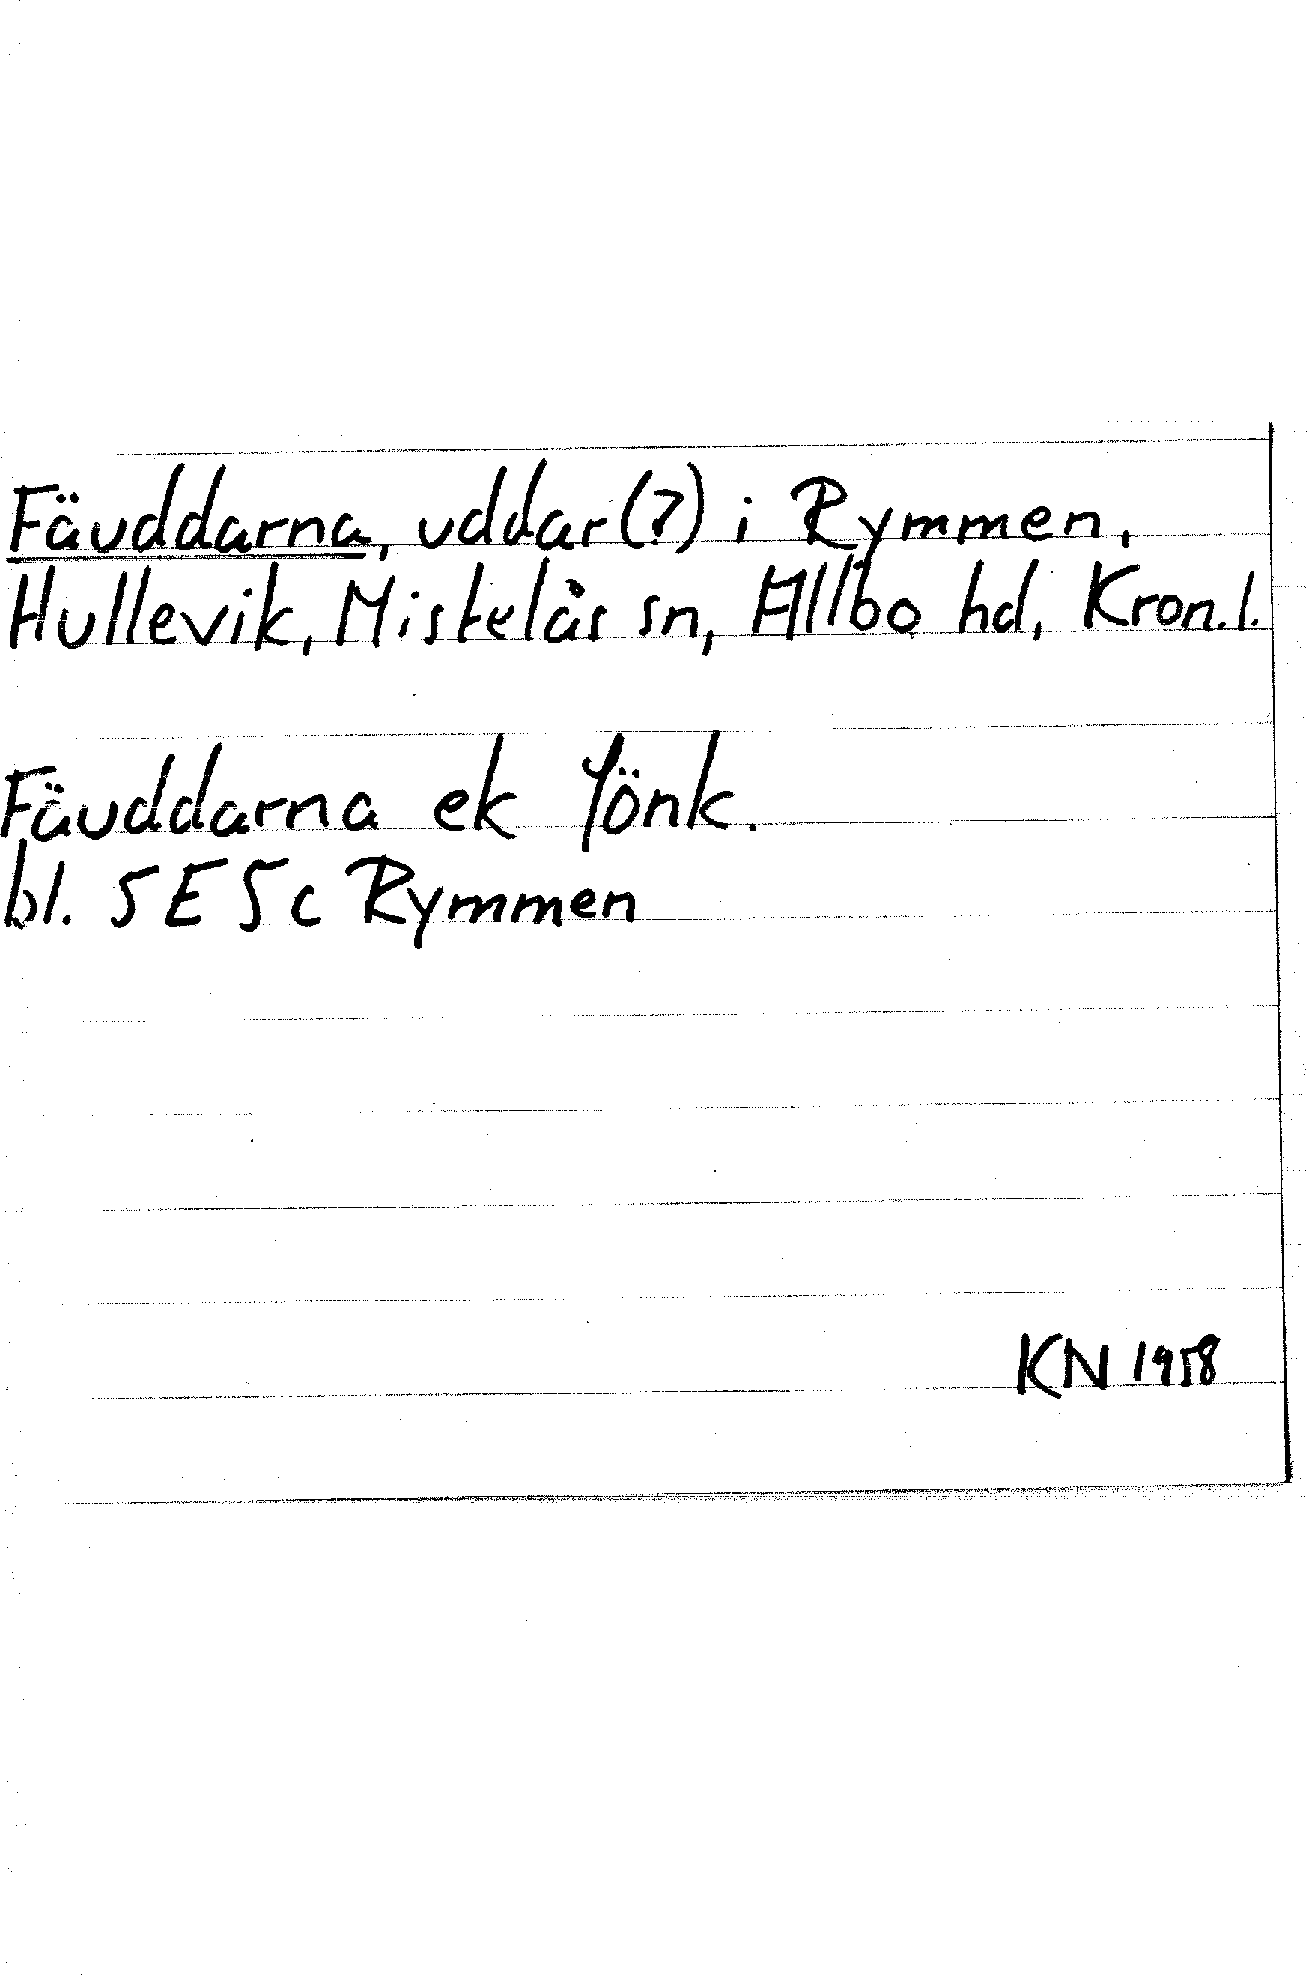 Fäuddarna, uddar(?) i Rymmen,
Hullevik, Mistelås sn, Allbo hd, Kron.l.
Fäuddarna ek Jönk.
bl. 5E5c Rymmen
KN 1958